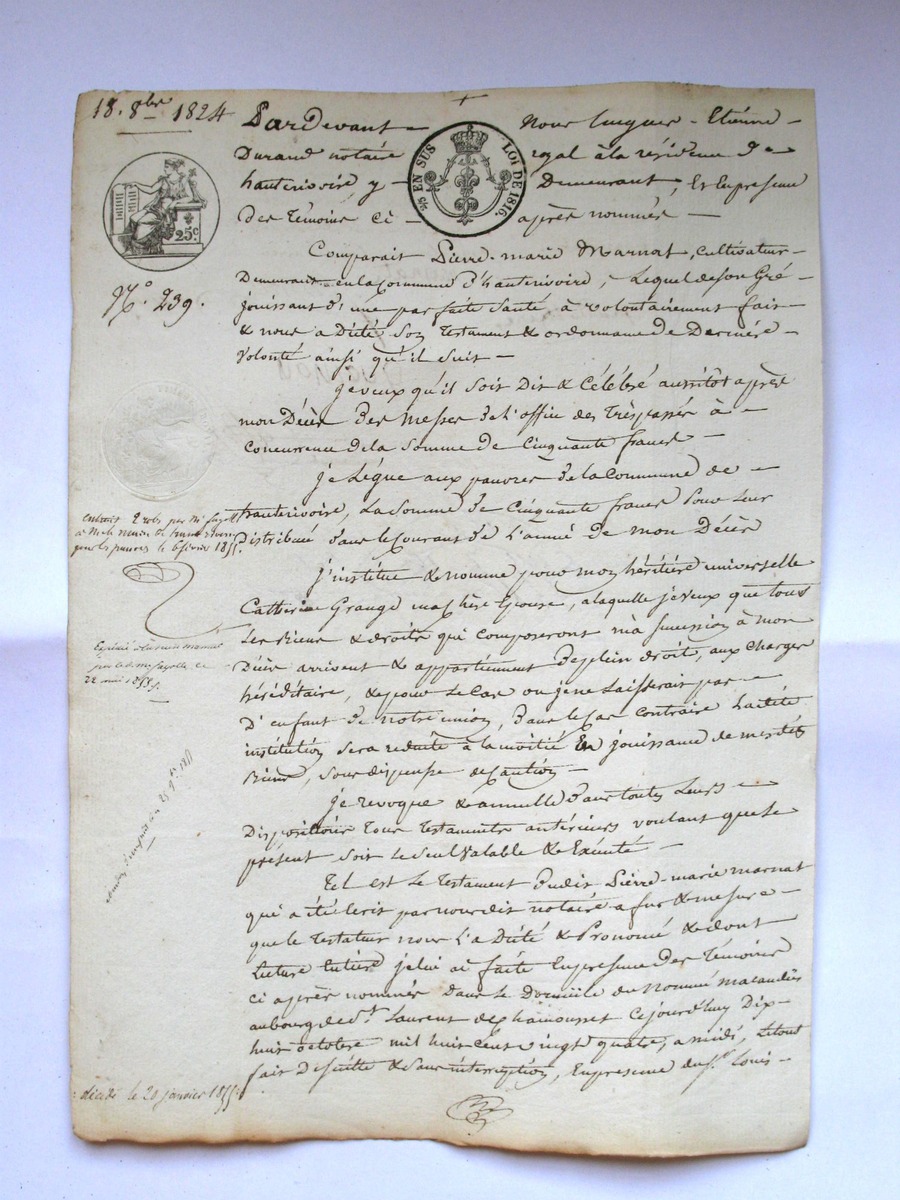 18. 8bre 1824
25 EN SUS LOI DE 1816.
25c.
No. 239.
Pardevant Nous hugues - Etienne -
Durand notaire royal à la résidence de
hauterivoire, y - Demeurant, & En presence
des Témoins Ci - après nommés -
Comparait Pierre-marie Marnat, cultivateur
Demeurant en la Commune d'hauterivoire, Lequel de son Gré
jouissant d'une parfaite Santé à volontairement fait
& nous a Dicté son Testament & ordonnance de Dernière
volonté ainsi qu'il suit -
je veux qu'il soit Dit & Célébré aussitôt après
mon Décès des Messes de l'office des Trèspassés à -
Concurrence de la Somme de Cinquante francs -
je Légue aux pauvres de la Commune de -
hauterivoire, La Somme de Cinquante francs pour Leur
Distribué dans le Courant de L'année de mon Décès
j'institue & nomme pour mon héritière universelle
Catherine Grange ma chère Epouse, a laquelle je veux que tous
Les Biens & droits qui Composeront ma Succession à mon
Décès arrivent & appartiennent de plein droit, aux Charges
héréditaire, & pour le Cas ou je ne Laisserais pas -
D'enfant de notre union, dans le Cas Contraire Ladite
institution sera réduite à la moitié En jouissance de mesdits
Biens, sous dispense de Caution -
je revoque & annulle dans toutes Leurs -
Dispositions Tous Testaments antérieurs voulant que le
présent soit le seul valable & Exécuté -
Tel est le Testament dudit Pierre-marie marnat
qui a été Ecrit par nous dit notaire a fur & mesure -
que le Testateur nous L'a Dicté & Prononcé & dont
Lecture Entière je lui ai faite En presence des Témoins
Ci après nommés dans le Domicile du Nommé
au bourg de St. Laurent de Chamousset Ce jourd'huy Dix-
huit octobre mil huit Cent vingt quatre, a midi, Le tout
fait de suitte & sans interruption, En presence du Sr. Louis -
Extrait 2 rôles par Me fayolle
pour les pauvres le 6 février 1855.
Expédié
par ledit Me fayolle le
22 mai 1855.
décédé le 20 janvier 1855.